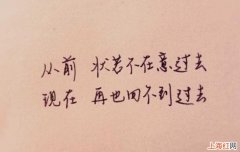 从前 状若不在意过去
现在 再也回不到过去
上海红网